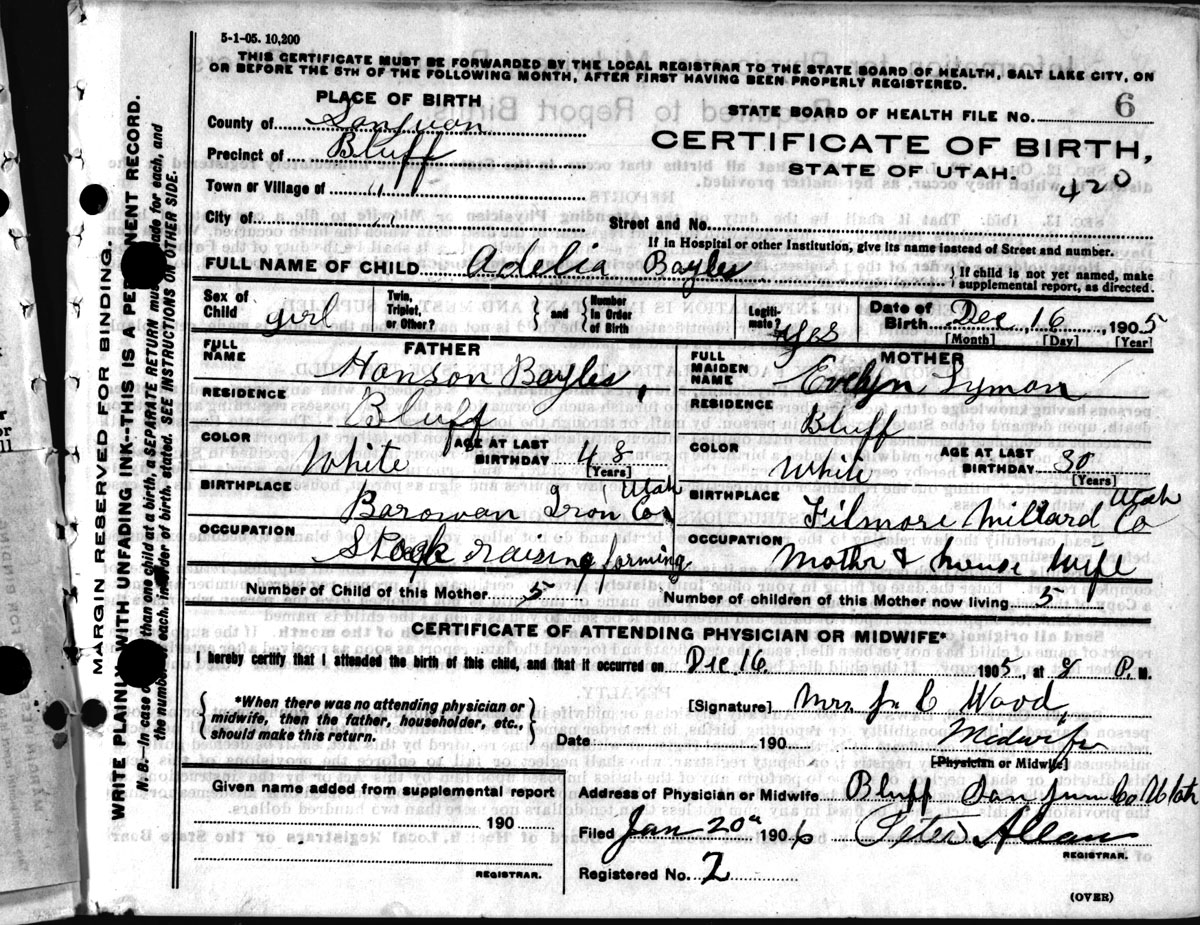 5-1-05. 10,200
THIS CERTIFICATE MUST BE FORWARDED BY THE LOCAL REGISTRAR TO THE STATE BOARD OF HEALTH, SALT LAKE CITY, ON
OR BEFORE THE 5TH OF THE FOLLOWING MONTH, AFTER FIRST HAVING BEEN PROPERLY REGISTERED.
PLACE OF BIRTH
STATE BOARD OF HEALTH FILE NO. 6
County of San Juan
CERTIFICATE OF BIRTH,
Precinct of Bluff
STATE OF UTAH.
420
Town or Village of "
City of "
Street and No.
If in Hospital or other Institution, give its name instead of Street and number.
FULL NAME OF CHILD Adelia Bayles
{ If child is not yet named, make
supplemental report, as directed.
Sex of Child girl
Twin, Triplet, or Other? } and { Number In Order of Birth
Legiti-mate? Yes
Date of Birth Dec 16, 1905
[Month] [Day] [Year]
FATHER
FULL NAME Hanson Bayles,
RESIDENCE Bluff
COLOR White
AGE AT LAST BIRTHDAY 48
[Years]
BIRTHPLACE Barowan Iron Co Utah
OCCUPATION Stock raising farming
Number of Child of this Mother 5
MOTHER
FULL MAIDEN NAME Evelyn Lyman
RESIDENCE Bluff
COLOR White
AGE AT LAST BIRTHDAY 30
[Years]
BIRTHPLACE Filmore Millard Co Utah
OCCUPATION Mother & house wife
Number of children of this Mother now living 5
CERTIFICATE OF ATTENDING PHYSICIAN OR MIDWIFE*
I hereby certify that I attended the birth of this child, and that it occurred on Dec. 16 1905, at 8 P. M.
{ *When there was no attending physician or
midwife, then the father, householder, etc.,
should make this return. }
[Signature] Mrs Jo C Wood,
Date 190 Midwife
[Physician or Midwife]
Given name added from supplemental report
190
REGISTRAR.
Address of Physician or Midwife Bluff San Juan Co Utah
Filed Jan 20th 1906 Peter Allan
REGISTRAR.
Registered No. 2
(OVER)
MARGIN RESERVED FOR BINDING.
WRITE PLAINLY WITH UNFADING INK--THIS IS A PERMANENT RECORD.
N. B.--In case of more than one child at a birth, a SEPARATE RETURN must be made for each, and
the number of each, in order of birth, stated. SEE INSTRUCTIONS ON OTHER SIDE.